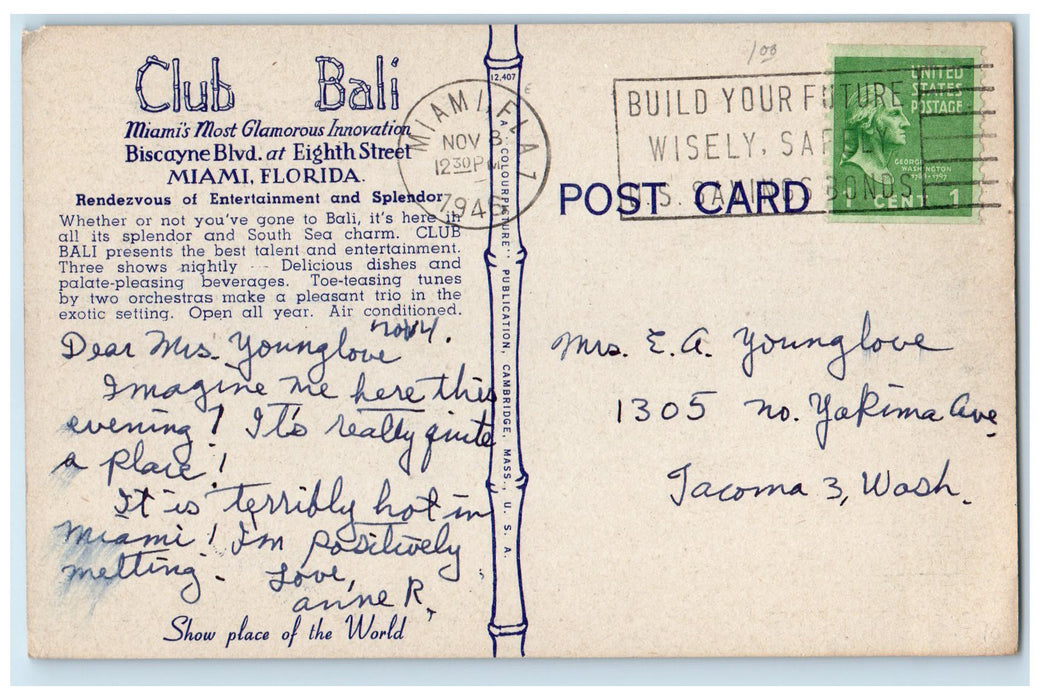 Club Bali
Miami's Most Glamorous Innovation
Biscayne Blvd. at Eighth Street
MIAMI, FLORIDA
Rendezvous of Entertainment and Splendor
Whether or not you've gone to Bali, it's here in
all its splendor and South Sea charm. CLUB
BALI presents the best talent and entertainment.
Three shows nightly -- Delicious dishes and
palate-pleasing beverages. Toe-teasing tunes
by two orchestras make a pleasant trio in the
exotic setting. Open all year. Air conditioned.
Nov 4.
Dear Mrs. Younglove
Imagine me here this
evening! It's really quite
a place!
It is terribly hot in
Miami! I'm positively
melting. Love,
Anne R.
Show place of the World
12,407
"A COLOURPICTURE" PUBLICATION, CAMBRIDGE, MASS., U. S. A.
MIAMI, FLA.
NOV 8
12 30 PM
1946
1 00
BUILD YOUR FUTURE
WISELY, SAFELY
U.S. SAVINGS BONDS
UNITED
STATES
POSTAGE
GEORGE
WASHINGTON
1789-1797
1 CENT 1
POST CARD
Mrs. E. A. Younglove
1305 No. Yakima Ave.
Tacoma 3, Wash.